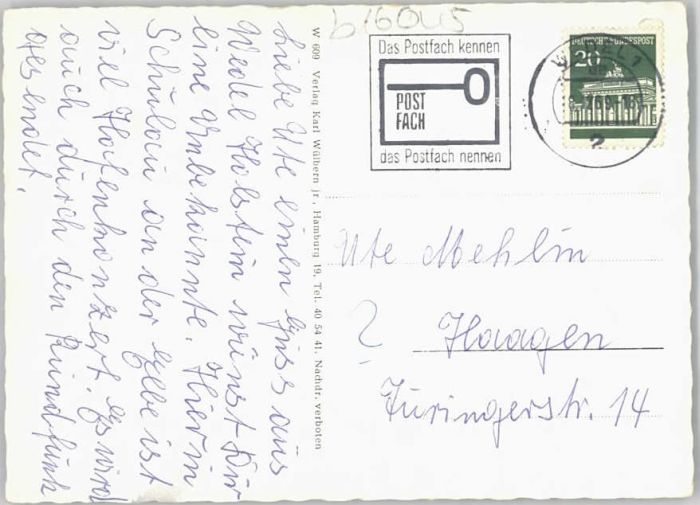 Liebe Ute einen Gruss aus
Wedel Holstein wünst Dir
eine Unbekannte. Hier in
Schulau an der Elbe ist
viel Hafenkonzert. Es wird
auch durch den Rundfunk
gesendet.
W 609 Verlag Karl Wülbern jr., Hamburg 19, Tel. 40 54 41, Nachdr. verboten
b160u5
Das Postfach kennen
POST
FACH
das Postfach nennen
DEUTSCHE BUNDESPOST
20
2
Ute Mehlin
?
Haagen
Türingerstr. 14